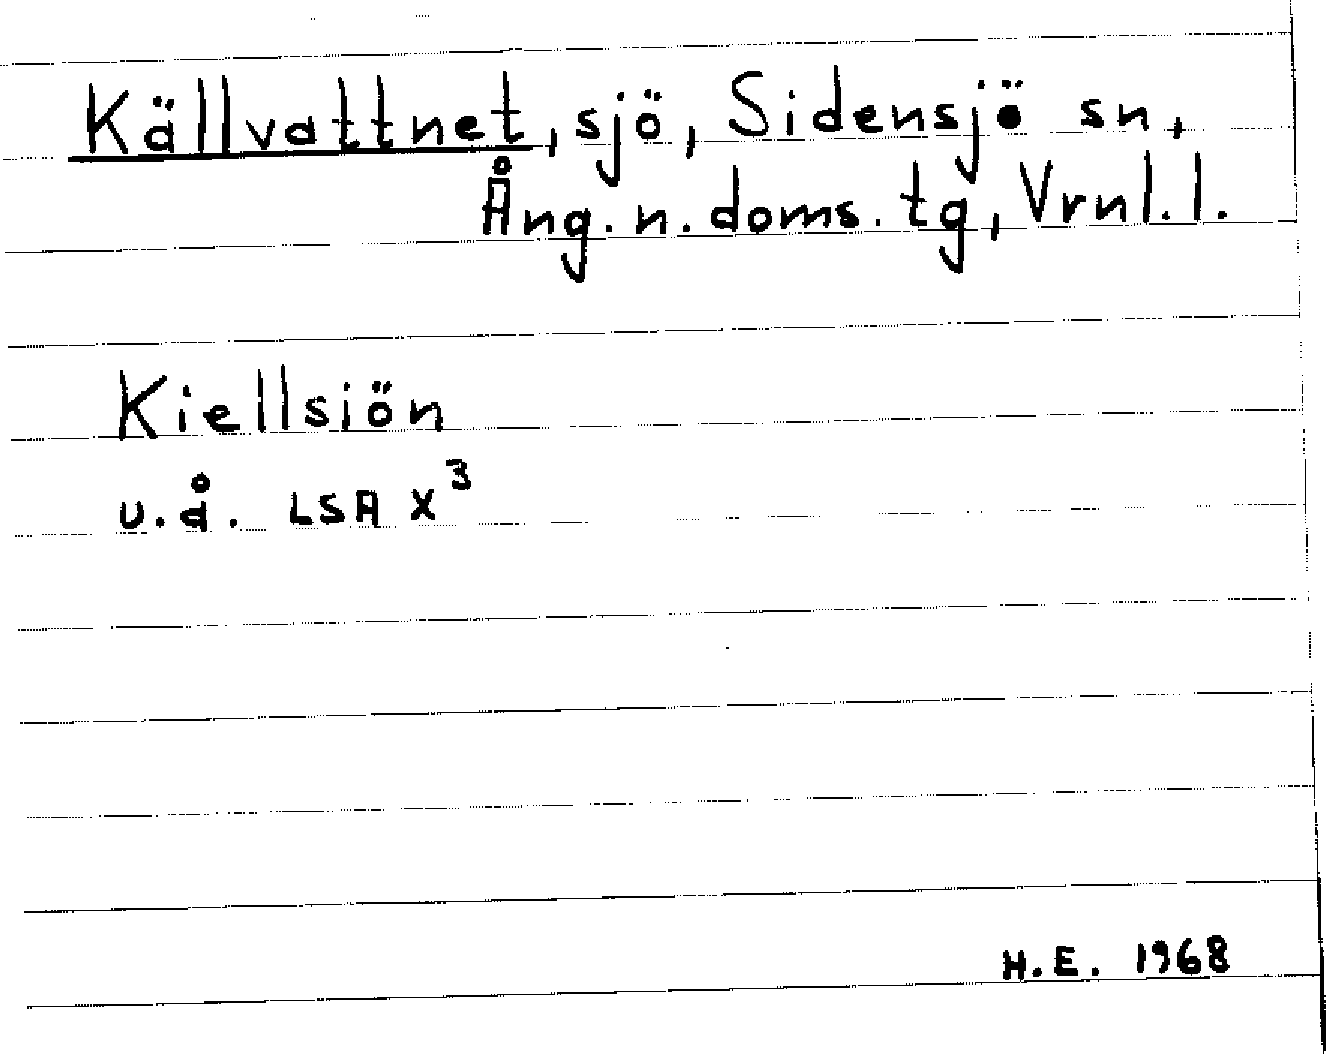 Källvattnet, sjö, Sidensjö sn,
Ång. n. doms. tg, Vrnl. l.
Kiellsiön
u. å. LSA X³
H.E. 1968